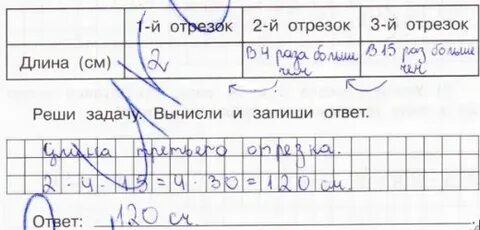 1-й отрезок 2-й отрезок 3-й отрезок
Длина (см) 2 В 4 раза больше чем В 15 раз больше чем
Реши задачу. Вычисли и запиши ответ.
Длина третьего отрезка.
2 · 4 · 15 = 4 · 30 = 120 см.
Ответ: 120 см.